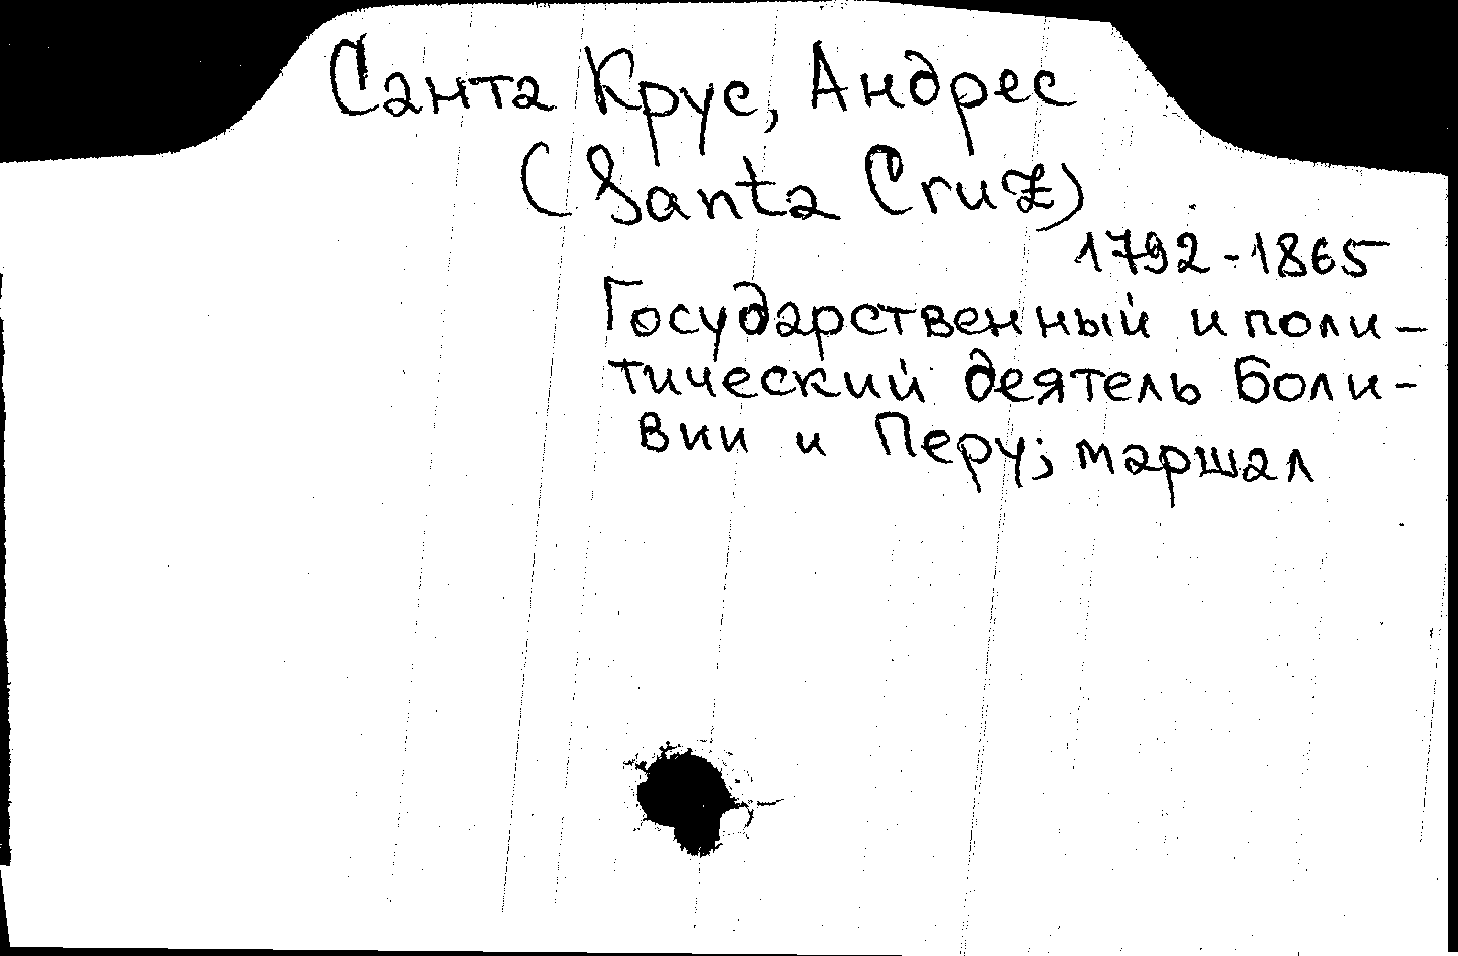 Санта Крус, Андрес
(Santa Cruz)
1792-1865
Государственный и поли-
тический деятель Боли-
вии и Перу; маршал